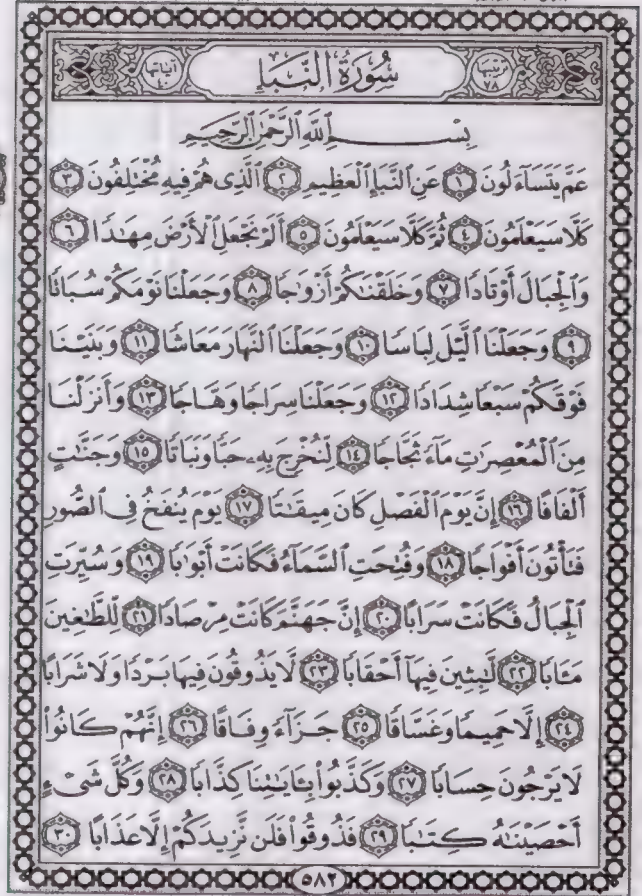 ترتيبها ٧٨ سُورَةُ النَّبَإِ آياتها ٤٠
بِسْمِ اللَّهِ الرَّحْمَٰنِ الرَّحِيمِ
عَمَّ يَتَسَآءَلُونَ ١ عَنِ ٱلنَّبَإِ ٱلْعَظِيمِ ٢ ٱلَّذِى هُمْ فِيهِ مُخْتَلِفُونَ ٣
كَلَّا سَيَعْلَمُونَ ٤ ثُمَّ كَلَّا سَيَعْلَمُونَ ٥ أَلَمْ نَجْعَلِ ٱلْأَرْضَ مِهَٰدًا ٦
وَٱلْجِبَالَ أَوْتَادًا ٧ وَخَلَقْنَٰكُمْ أَزْوَٰجًا ٨ وَجَعَلْنَا نَوْمَكُمْ سُبَاتًا
٩ وَجَعَلْنَا ٱلَّيْلَ لِبَاسًا ١٠ وَجَعَلْنَا ٱلنَّهَارَ مَعَاشًا ١١ وَبَنَيْنَا
فَوْقَكُمْ سَبْعًا شِدَادًا ١٢ وَجَعَلْنَا سِرَاجًا وَهَّاجًا ١٣ وَأَنزَلْنَا
مِنَ ٱلْمُعْصِرَٰتِ مَآءً ثَجَّاجًا ١٤ لِّنُخْرِجَ بِهِۦ حَبًّا وَنَبَاتًا ١٥ وَجَنَّٰتٍ
أَلْفَافًا ١٦ إِنَّ يَوْمَ ٱلْفَصْلِ كَانَ مِيقَٰتًا ١٧ يَوْمَ يُنفَخُ فِى ٱلصُّورِ
فَتَأْتُونَ أَفْوَاجًا ١٨ وَفُتِحَتِ ٱلسَّمَآءُ فَكَانَتْ أَبْوَٰبًا ١٩ وَسُيِّرَتِ
ٱلْجِبَالُ فَكَانَتْ سَرَابًا ٢٠ إِنَّ جَهَنَّمَ كَانَتْ مِرْصَادًا ٢١ لِّلطَّٰغِينَ
مَـَٔابًا ٢٢ لَّٰبِثِينَ فِيهَآ أَحْقَابًا ٢٣ لَّا يَذُوقُونَ فِيهَا بَرْدًا وَلَا شَرَابًا
٢٤ إِلَّا حَمِيمًا وَغَسَّاقًا ٢٥ جَزَآءً وِفَاقًا ٢٦ إِنَّهُمْ كَانُوا۟
لَا يَرْجُونَ حِسَابًا ٢٧ وَكَذَّبُوا۟ بِـَٔايَٰتِنَا كِذَّابًا ٢٨ وَكُلَّ شَىْءٍ
أَحْصَيْنَٰهُ كِتَٰبًا ٢٩ فَذُوقُوا۟ فَلَن نَّزِيدَكُمْ إِلَّا عَذَابًا ٣٠
٥٨٢